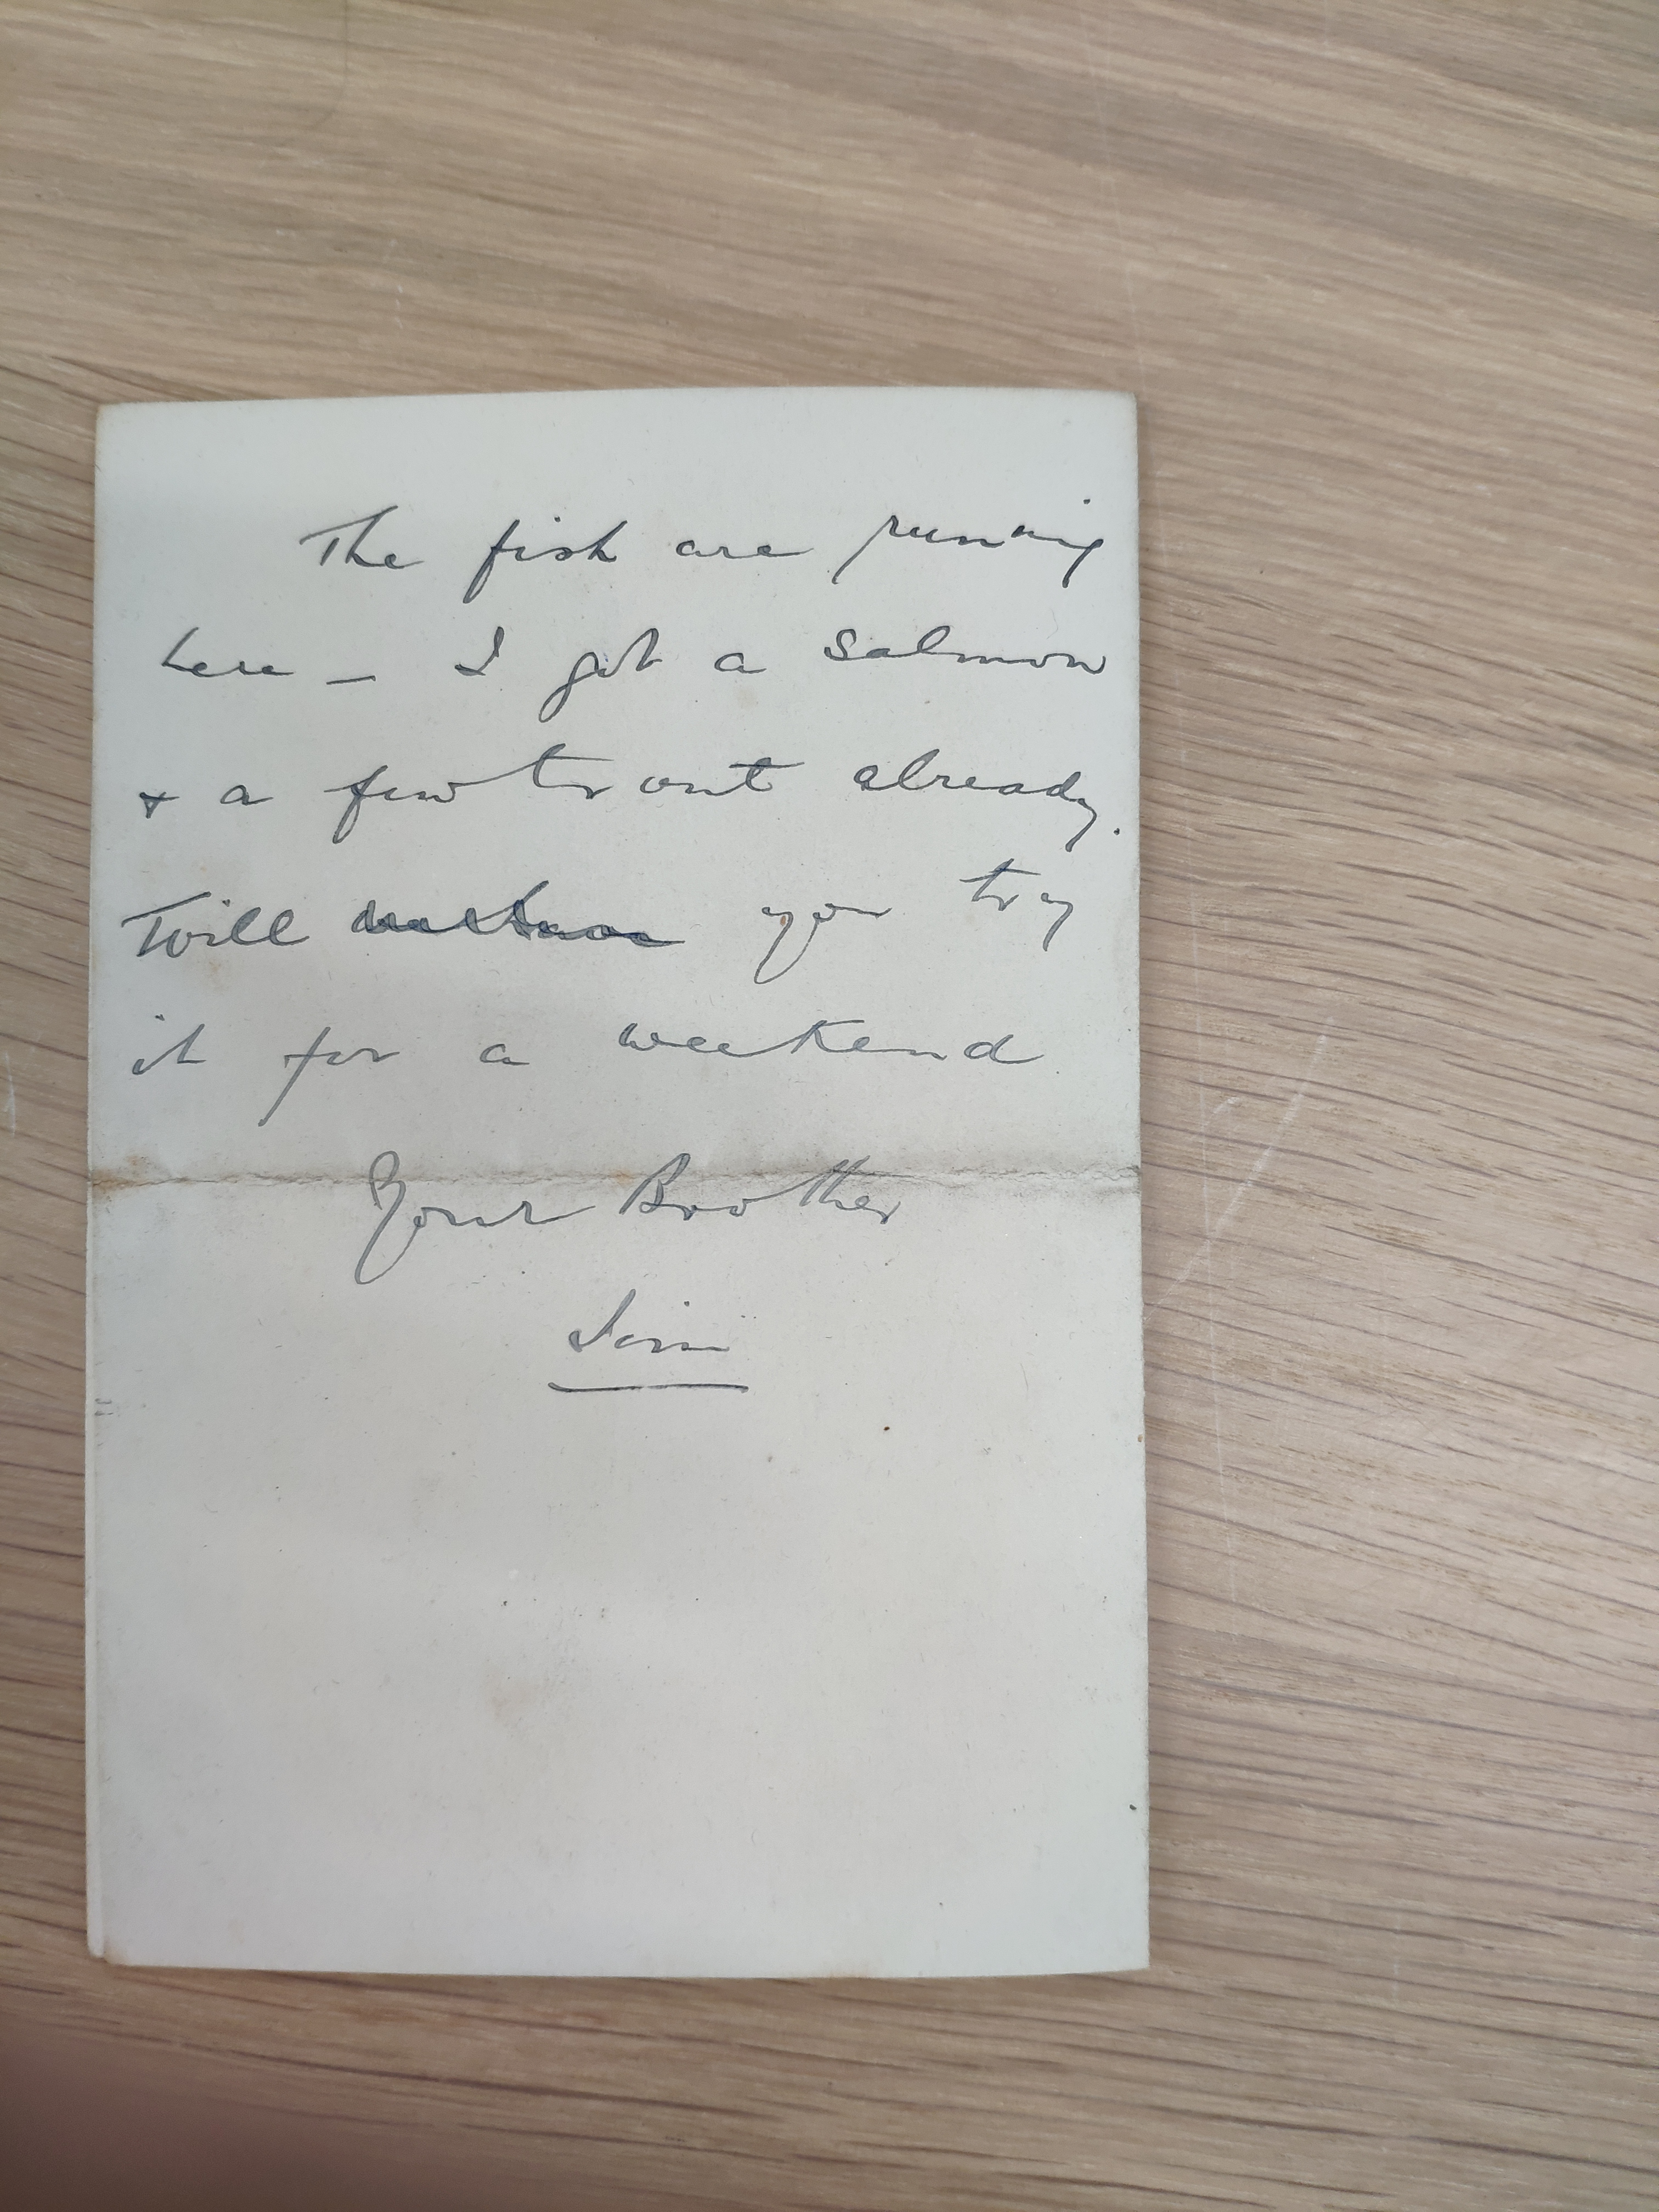 The fish are running
here – I got a salmon
& a few trout already.
Will you try
it for a weekend
Your Brother